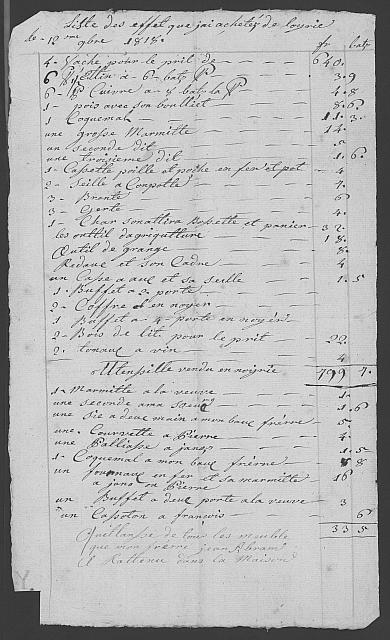 Liste des effet que jai achetez de loyrie
de 12 me 9bre 1818.
fr batz
4. Vache pour le pril de 640.
6 à 6 batz 3. 9
6 Cuivre à 8 batz la 4. 8
1 pois avec son 8. 6
1 Coquemal 11. 3
une grosse Marmitte 14.
un seconde dit
une troisieme dit 1. 6
1 Cassette poille et poche en fer et pot 4
2 Seille à Compotte 4.
3 Brente 6
3 Gerte 4.
1 Char et panier
les outtil dagriqulture 32.
Outil de grange 18.
Redaue et son Cadre 4
un Casse a aue et sa seille 1. 5
1. Buffet a 2 porte
2 Coffre en noyer
1 Buffet a 4 porte en noyér
2 Bois de lit pour le prit 22.
2. tonaux a vin 4
Uttensille vendu en noyrie 799 4.
1 Marmitte a la veuve 1.
une seconde a ma 1. 6
une Sie a deux main a mon baux frérne 5
une Couvette a Pierre 4.
une Palliasse a janot 1. 5
1 Coquemal a mon baux frérne 8
un fournaux en fer et sa marmitte 16
a janot ou Pierre
un Buffet a deux porte a la veuve 3
un Cassoton a francois 6
33 5
Quittansse de tous les meuble
que mon frerre jean Abram
a Rattenu dans la Maison